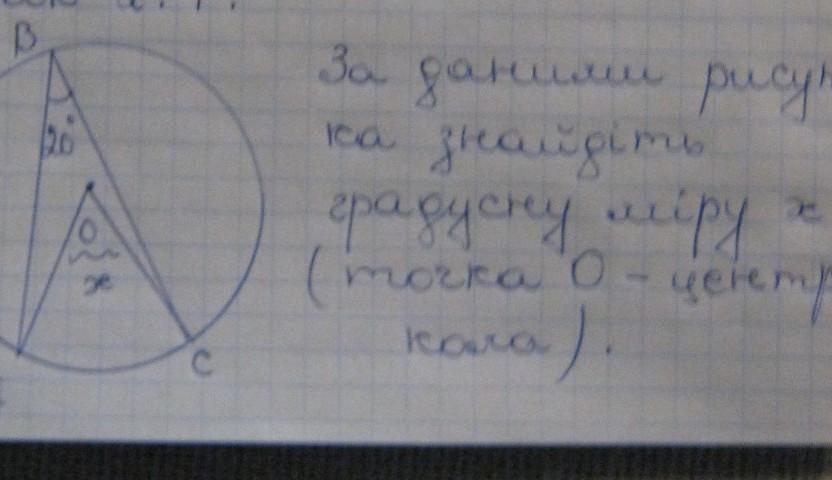 В
20°
О
x
С
За даними рисун
ка знайдіть
градусну міру x
(точка О - центр
кола).